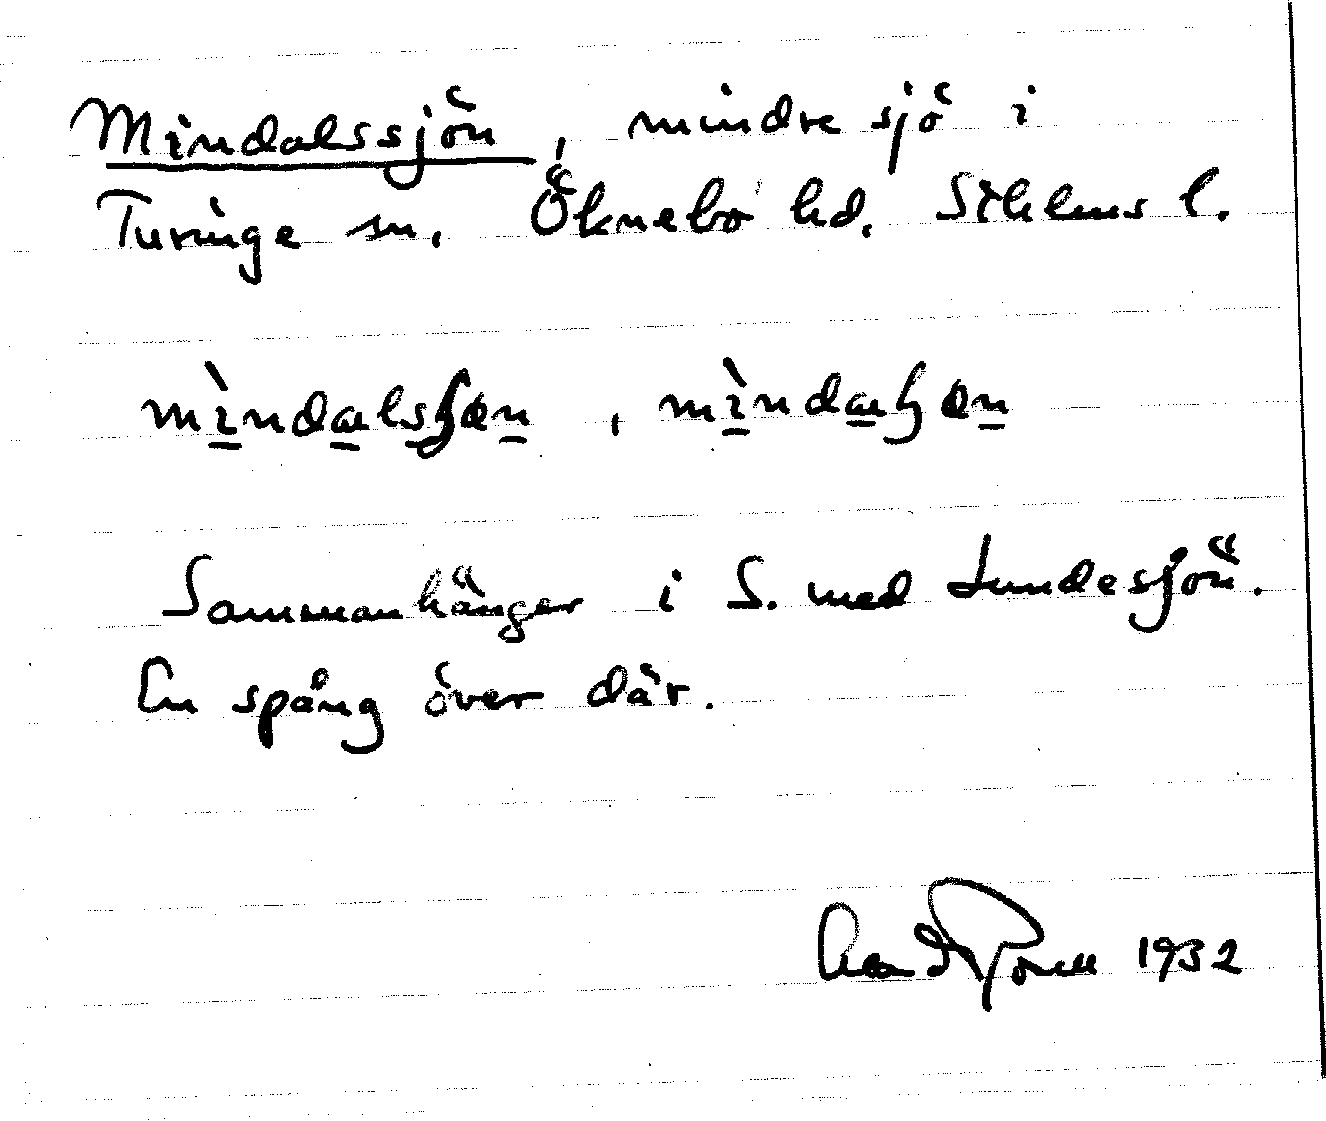 Mindalssjön, mindre sjö i
Turinge sn. Öknebo hd. Sthlms l.
Sammanhänger i S. med Sundesjön.
En spång över där.
1932